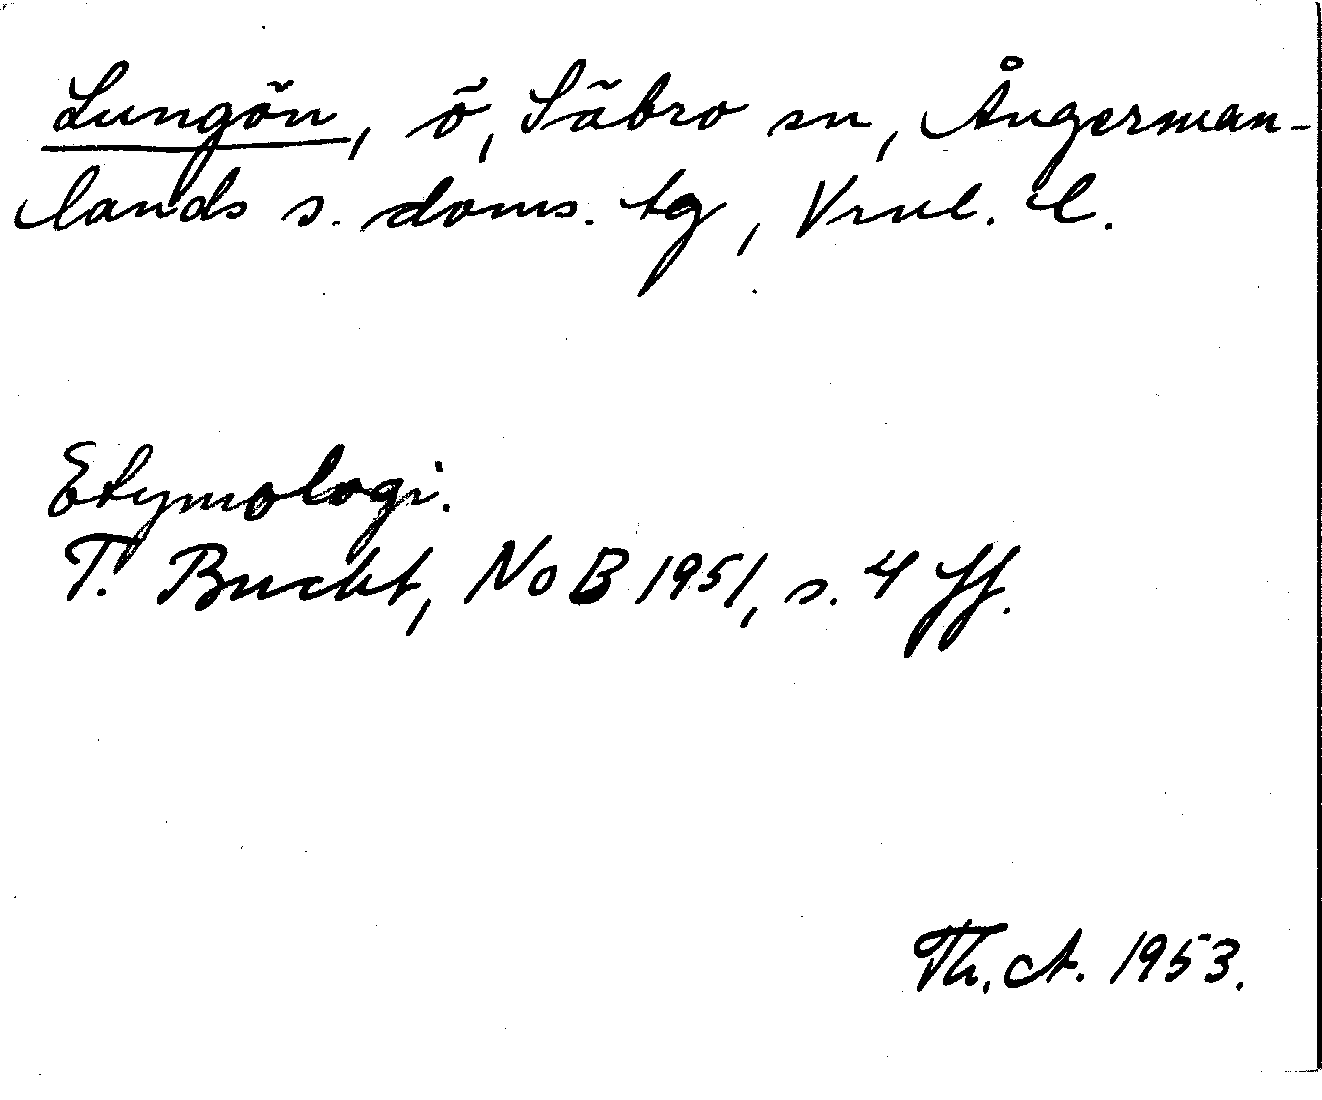 Lungön, ö, Säbrå sn, Ångerman-
lands s. doms. tg, Vrnl. l.
Etymologi.
T. Bucht, NoB 1951, s. 4 ff.
Th. A. 1953.